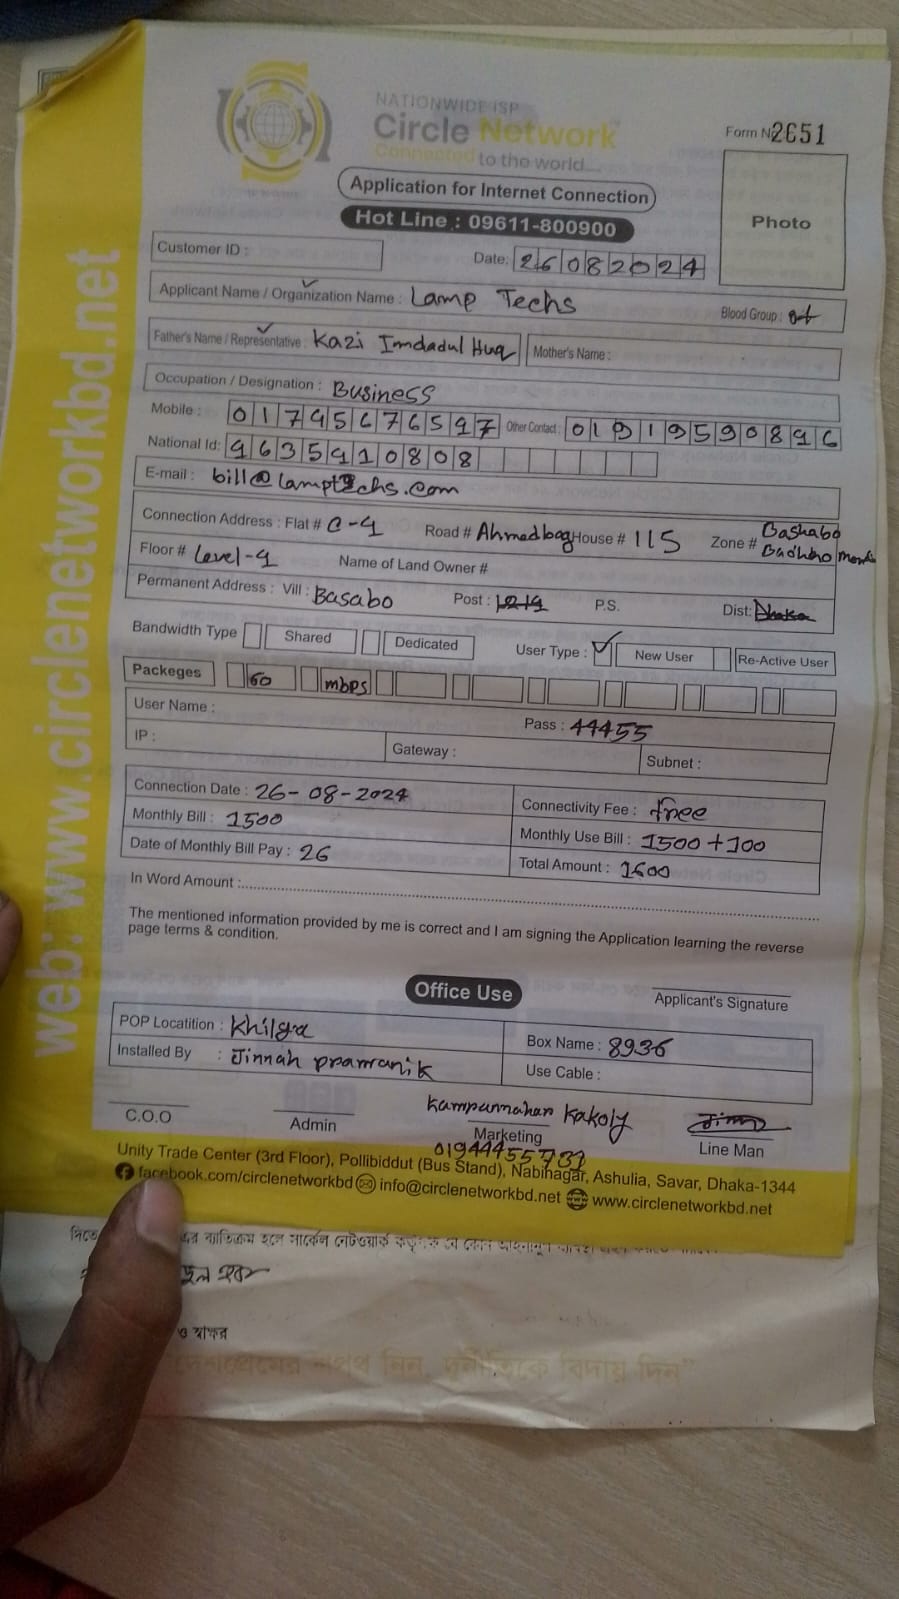 NATIONWIDE ISP
Circle Network
Connected to the world....
Form No 2651
Application for Internet Connection
Hot Line : 09611-800900
Photo
Customer ID :
Date: 26082024
Applicant Name / Organization Name : Lamp Techs
Blood Group :
Father's Name / Representative : Kazi Imdadul Huq
Mother's Name :
Occupation / Designation : Business
Mobile : 01795676597 Other Contact : 01919590896
National Id: 9635910808
E-mail : bill@lamptechs.com
Connection Address : Flat # C-9 Road # Ahmedbag House # 115 Zone # Bashabo
Floor # Level-9 Name of Land Owner #
Permanent Address : Vill : Basabo Post : P.S. Dist: Dhaka
Bandwidth Type Shared Dedicated User Type : New User Re-Active User
Packeges 60 mbps
User Name : Pass : 44455
IP : Gateway : Subnet :
Connection Date : 26-08-2024 Connectivity Fee : free
Monthly Bill : 1500 Monthly Use Bill : 1500 + 100
Date of Monthly Bill Pay : 26 Total Amount : 1600
In Word Amount :
The mentioned information provided by me is correct and I am signing the Application learning the reverse
page terms & condition.
Office Use
Applicant's Signature
POP Locatition : Khilga Box Name : 8936
Installed By : Jinnah pramanik Use Cable :
C.O.O Admin Kakoly Marketing Line Man
Unity Trade Center (3rd Floor), Pollibiddut (Bus Stand), Nabinagar, Ashulia, Savar, Dhaka-1344
facebook.com/circlenetworkbd info@circlenetworkbd.net www.circlenetworkbd.net
web: www.circlenetworkbd.net
ও স্বাক্ষর
দেশপ্রেমের শপথ নিন, দুর্নীতিকে বিদায় দিন"